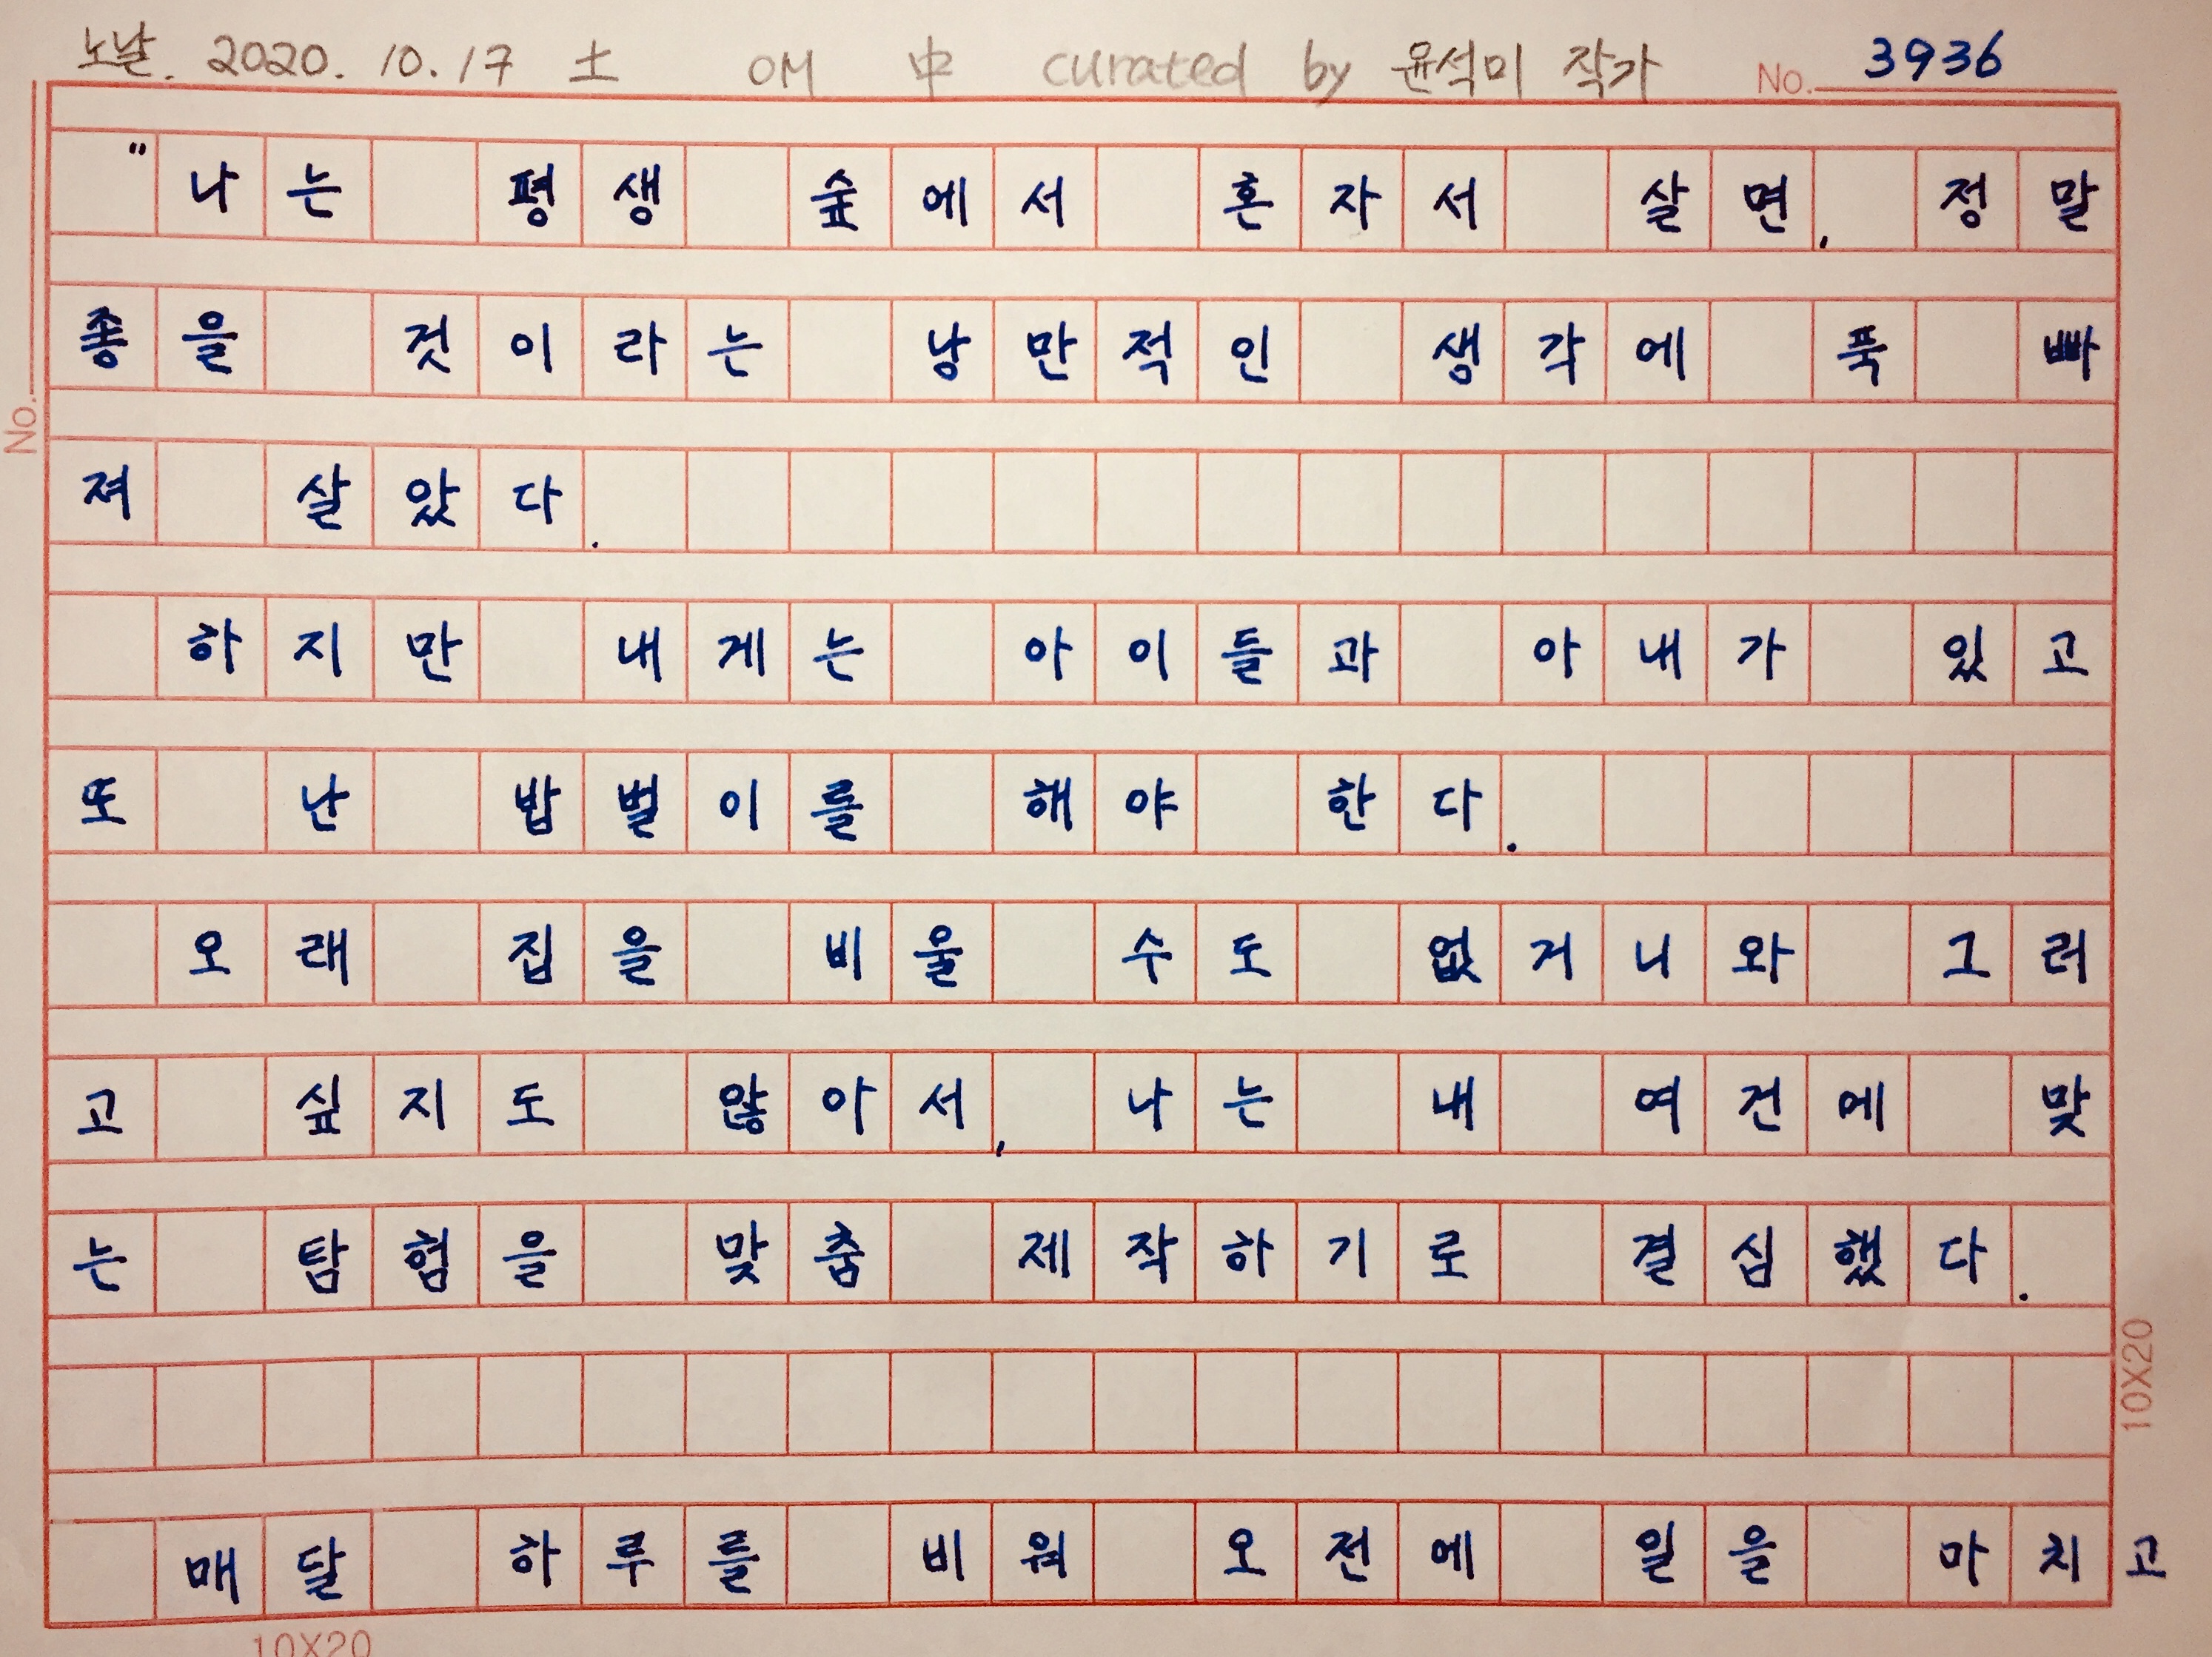 노날. 2020. 10. 17 土 OM 中 curated by 윤석미 작가 No. 3936
"나는 평생 숲에서 혼자서 살면, 정말
좋을 것이라는 낭만적인 생각에 푹 빠
져 살았다.
하지만 내게는 아이들과 아내가 있고
또 난 밥벌이를 해야 한다.
오래 집을 비울 수도 없거니와 그러
고 싶지도 않아서, 나는 내 여건에 맞
는 탐험을 맞춤 제작하기로 결심했다.
매달 하루를 비워 오전에 일을 마치고
No.
10X20
10X20